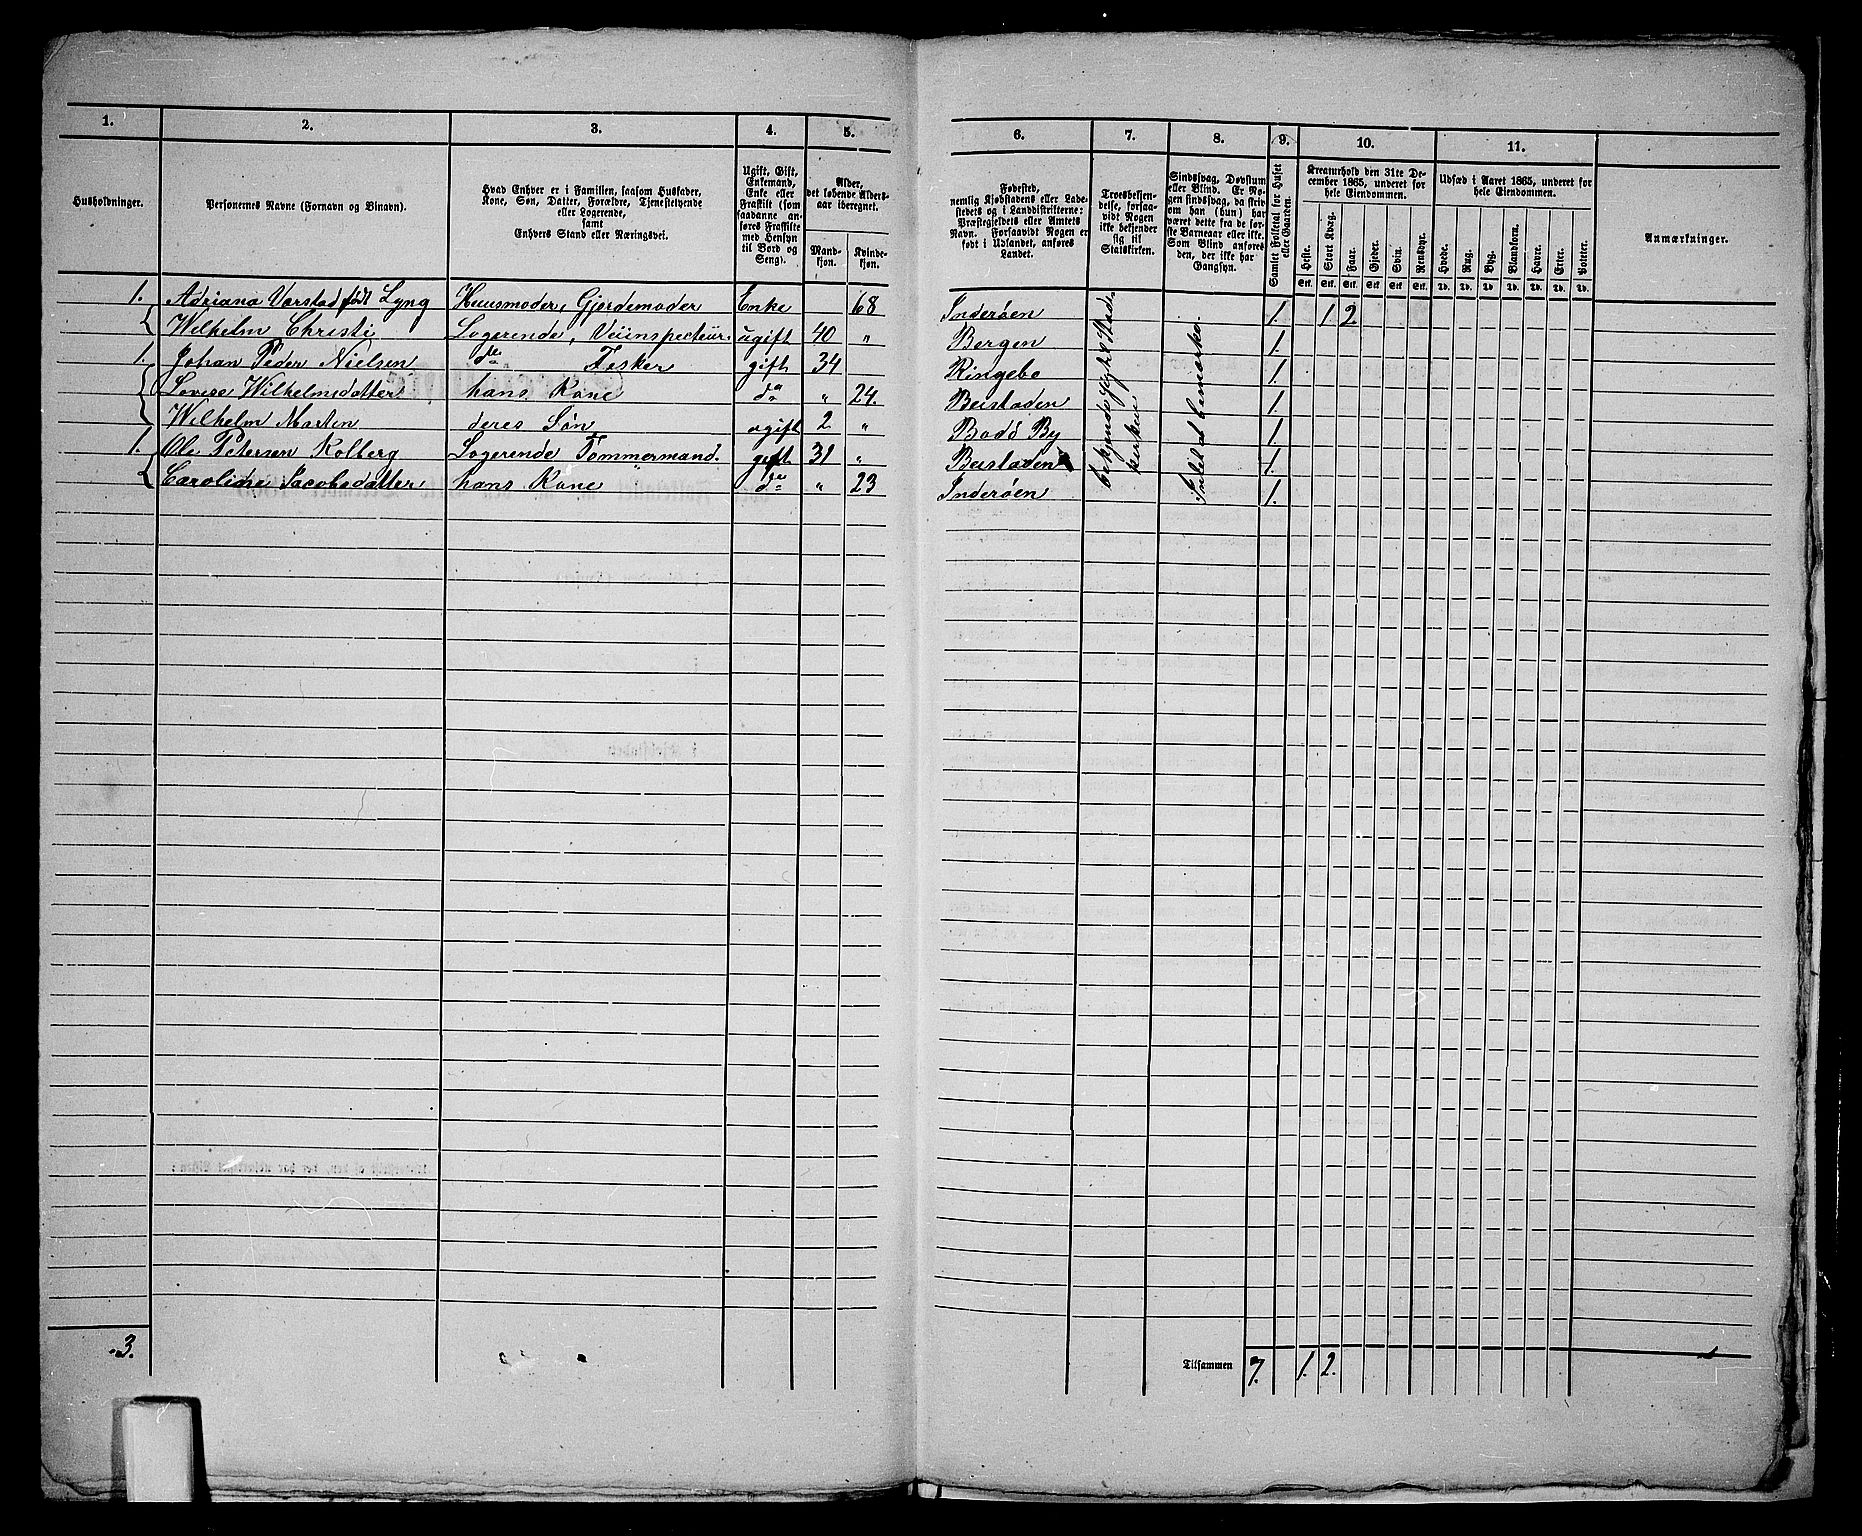 1. 2. 3. 4. 5. 6. 7. 8. 9. 10. 11.
Husholdninger.
Personernes Navne (Fornavn og Binavn).
Hvad Enhver er i Familien, saasom Husfader,
Kone, Søn, Datter, Forældre, Tjenestetyende
eller Logerende,
samt
Enhvers Stand eller Næringsvei.
Ugift, Gift,
Enkemand,
Enke eller
Fraskilt (som
saadanne an-
føres Fraskilte
med Hensyn
til Bord og
Seng).
Alder,
det løbende Alders-
aar iberegnet.
Mand-
kjøn.
Kvinde-
kjøn.
Fødested,
nemlig Kjøbstadens eller Lade-
stedets og i Landdistrikterne:
Præstegjeldets eller Amtets
Navn. Forsaavidt Nogen er
født i Udlandet, anføres
Landet.
Troesbekjen-
delse, forsaa-
vidt Nogen
ikke bekjender
sig til
Statskirken.
Sindssvag, Døvstum
eller Blind. Er No-
gen sindssvag, da skriv
om han (hun) har
været dette fra de før-
ste Barneaar eller ikke.
Som Blind anføres
den, der ikke har
Gangsyn.
Samlet Folketal for Huset
eller Gaarden.
Kreaturhold den 31te De-
cember 1865, underet for
hele Eiendommen.
Heste. Stort Kvæg. Faar. Gjeder. Svin. Rensdyr.
Stk. Stk. Stk. Stk. Stk. Stk.
Udsæd i Aaret 1865, underet for
hele Eiendommen.
Hvede. Rug. Byg. Blandkorn. Havre. Erter. Poteter.
Td. Td. Td. Td. Td. Td. Td.
Anmærkninger.
1. Adriana Vorstad født Lyng Huusmoder, Gjordemoder Enke 68 Inderøen 1. 1. 2
Wilhelm Christi Logerende, Veiinspecteur. ugift 40 " Bergen 1.
1. Johan Peder Nielsen do Fisker gift 34 Ringebo 1.
Lovise Wilhelmsdatter hans Kone do " 24. Beistaden 1.
Wilhelm Martin deres Søn ugift 2 " Bodö By 1.
1. Ole Petersen Kolberg Logerende Tømmermand. gift 31 " Beistaden 1.
Caroline Jacobsdatter hans Kone do " 23 Inderøen 1.
bekjende sig til Stads
kirken
Intet at bemærke.
3. Tilsammen 7. 1. 2.